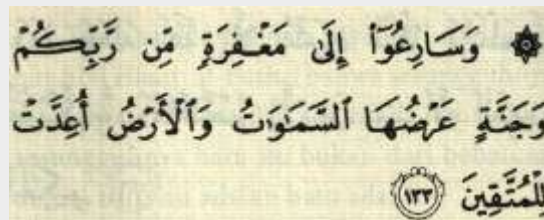 ۞ وَسَارِعُوٓا۟ إِلَىٰ مَغْفِرَةٍ مِّن رَّبِّكُمْ
وَجَنَّةٍ عَرْضُهَا ٱلسَّمَـٰوَٰتُ وَٱلْأَرْضُ أُعِدَّتْ
لِلْمُتَّقِينَ ١٣٣